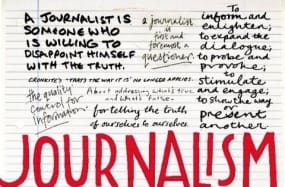 A JOURNALIST IS
SOMEONE WHO
IS WILLING TO
DISAPPOINT HIMSELF
WITH THE TRUTH.
a journalist
is
first and
foremost a
questioner.
To
inform and
enlighten;
to expand the
dialogue;
to probe and
provoke;
to
stimulate
and engage;
to show the
way
present
another
CRONKITE'S "THAT'S THE WAY IT IS" NO LONGER APPLIES.
the quality
control for
information.
About addressing what's true
and what's false.
for telling the truth
of ourselves to ourselves.
JOURNALISM